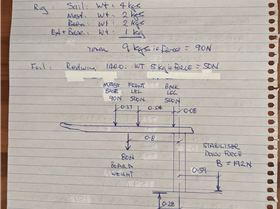 Rig Sail: Wt: 4 kgs
Mast: Wt: 2 kgs
Boom: Wt: 2 kgs
Ext + Base: Wt: 1 kg
9 kgs = force = 90N
Foil: Redwing 1200: WT 5 kg = force = 50N
MAST FRONT BACK
BASE LEG LEG
90N 500N 500N
0.37 0.05
0.8
80N STABILISER
BOARD DOWN FORCE
WEIGHT B = 192N
0.59
0.28